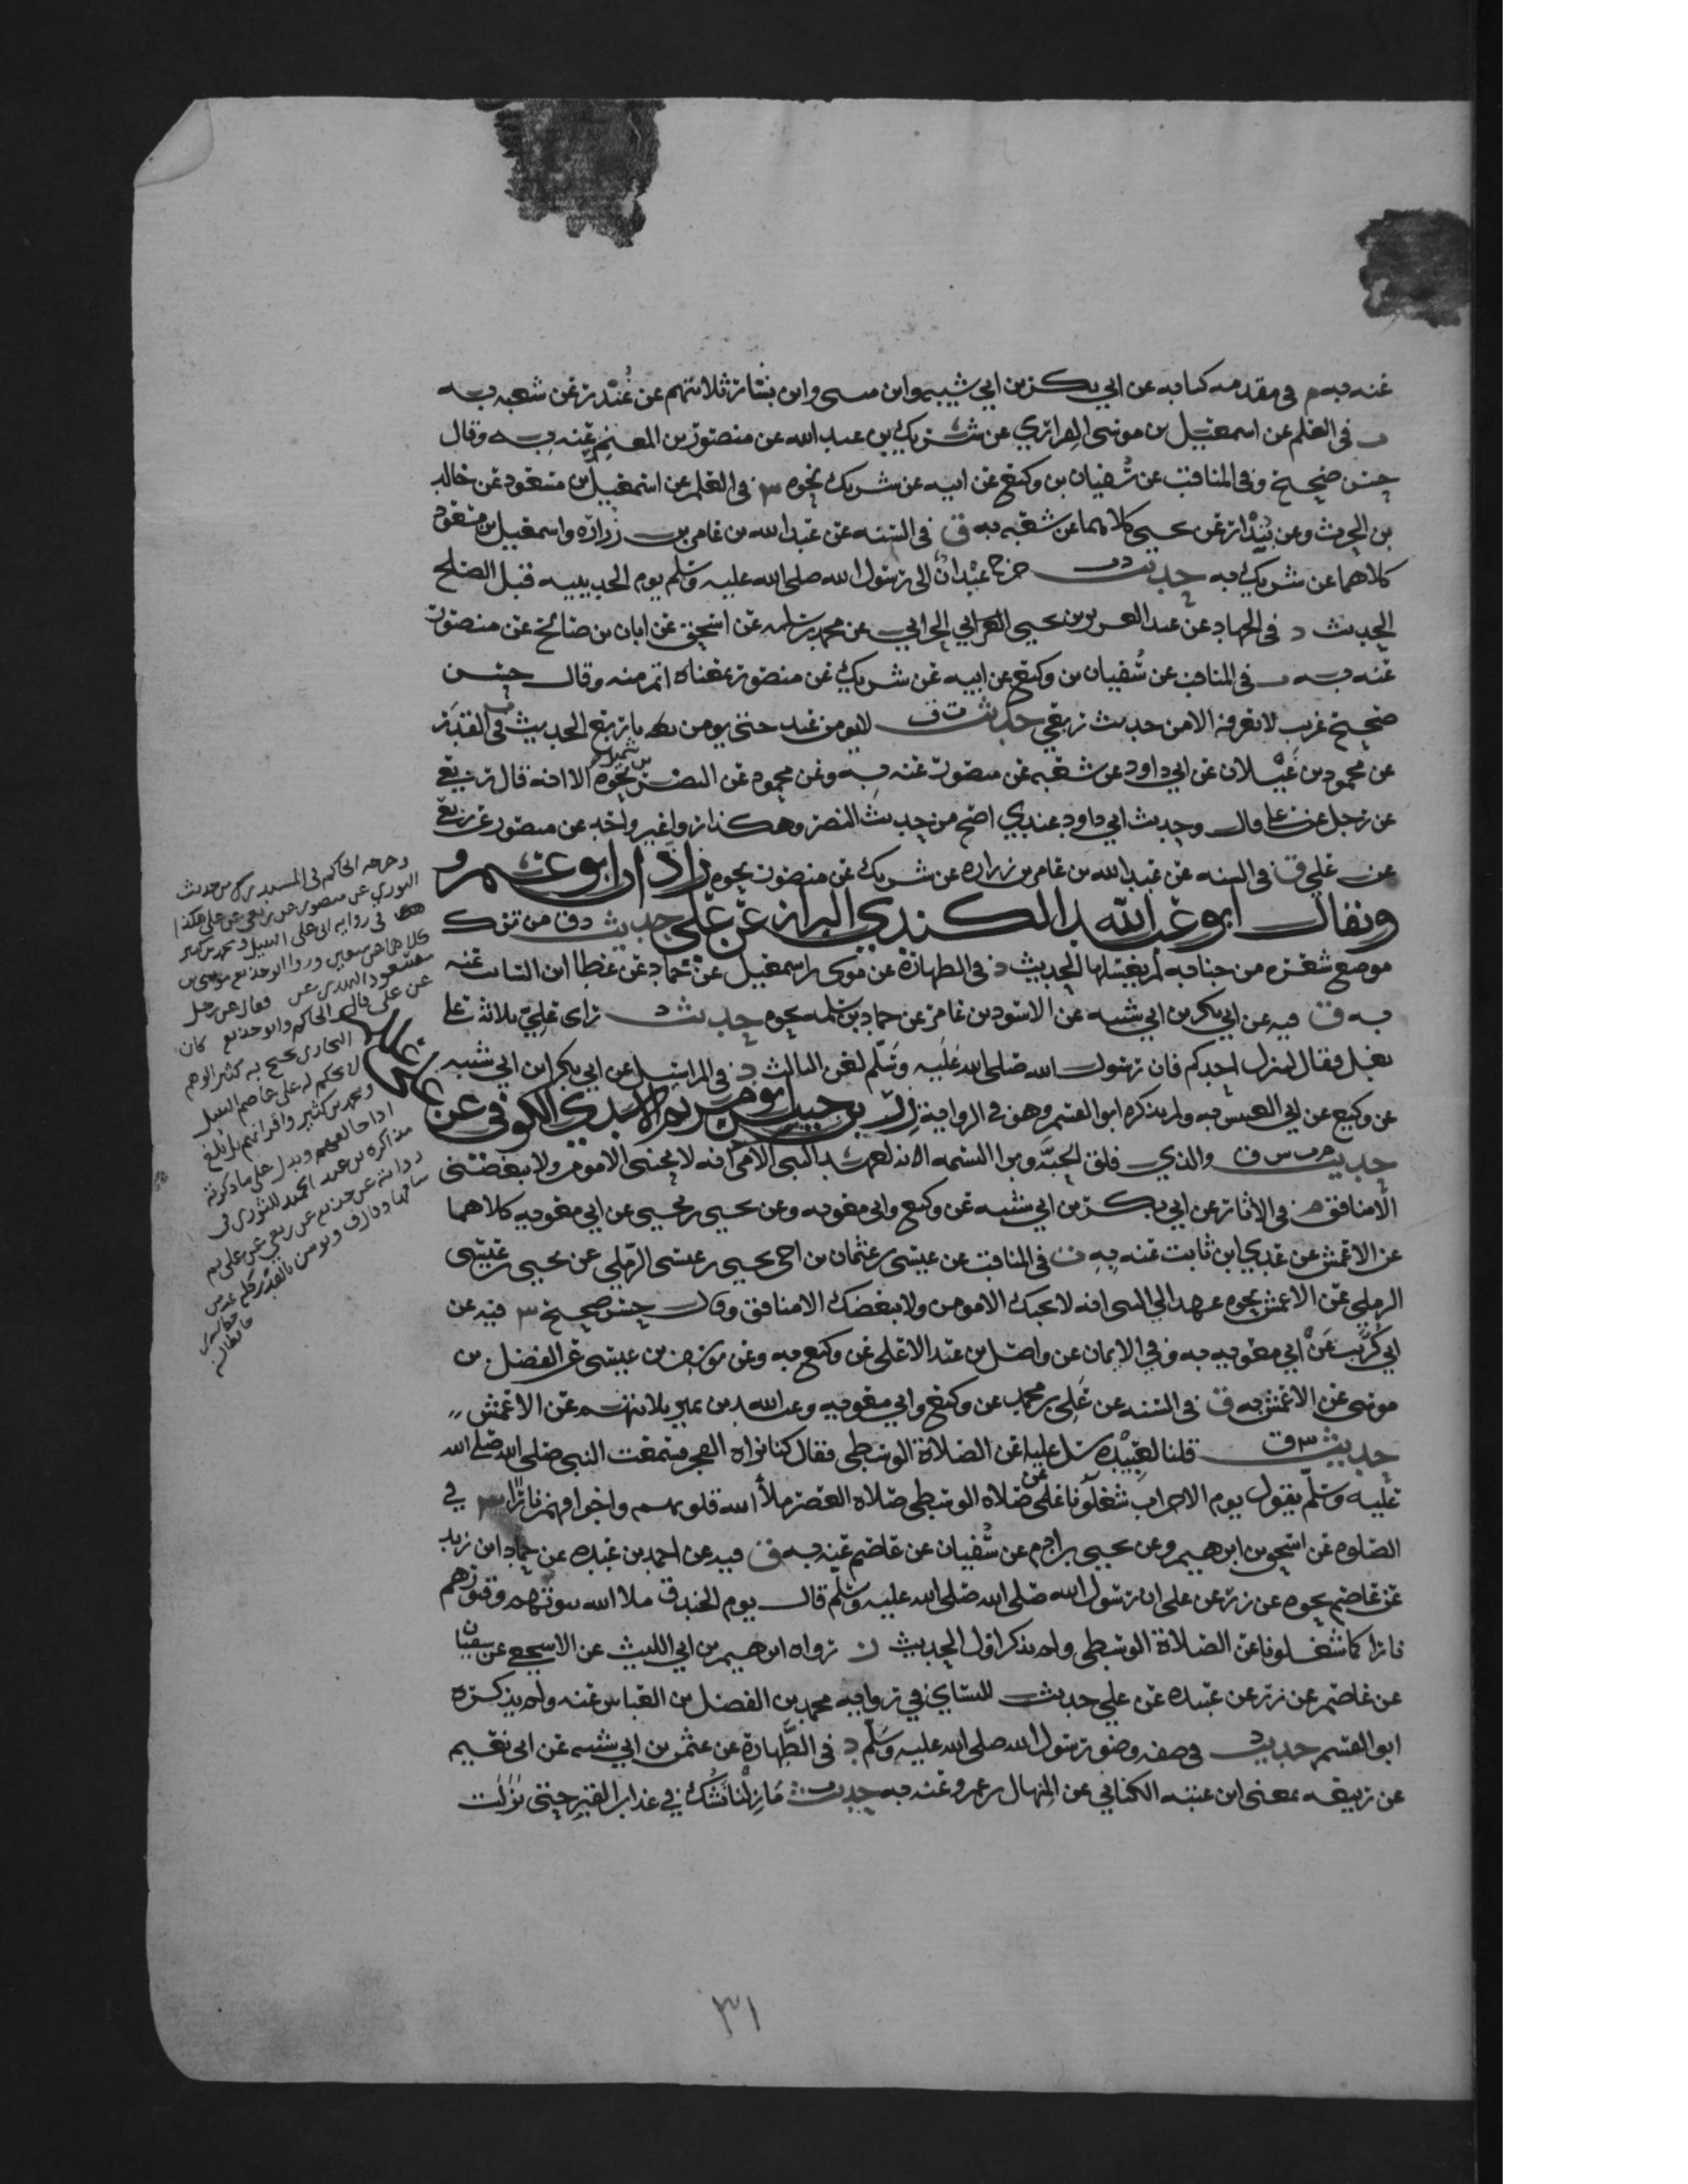 عنه به م في مقدمة كتابه عن ابي بكر بن ابي شيبه وابن مثنى وابن بشار ثلاثتهم عن غُنْدر عن شعبه به
ت في العلم عن اسمعيل بن موسى الفزاري عن شريك بن عبد الله عن منصور بن المعتمر عنه به وقال
حسن صحيح وفي المناقب عن سُفيان بن وكيع عن ابيه عن شريك نحوه س في العلم عن اسمعيل بن مسعود عن خالد
بن الحرث وعن بُنْدار عن يحيى كلاهما عن شعبه به ق في السنه عن عبد الله بن عامر بن زراره واسمعيل بن موسى
كلاهما عن شريك به حديث خرج عبْدان الى رسول الله صلى الله عليه وسلم يوم الحديبيه قبل الصلح
الحديث د في الجهاد عن عبد العزيز بن يحيى الحراني عن محمد بن سلمه عن اسحق عن ابان بن صالح عن منصور
عنه به ت في المناقب عن سُفيان بن وكيع عن ابيه عن شريك عن منصور بمعناه اتم منه وقال حسن
صحيح غريب لا نعرفه الا من حديث ربعي حديث ت ق لا يومن عبد حتى يومن باربع الحديث ت في القدر
عن محمود بن غَيْلان عن ابي داود عن شعبه عن منصور عنه به وعن محمود عن النضر بن شميل نحوه الا انه قال ربعي
عن رجل عن علي قال وحديث ابي داود عندي اصح من حديث النضر وهكذا روا غير واحد عن منصور عن ربعي
عن علي ق في السنه عن عبد الله بن عامر بن زراره عن شريك عن منصور نحوه زاذان ابو عمر و
ويقال ابو عبد الله الكندي البزاز عن علي حديث د ق من ترك
موضع شعره من جنابه لم يغسلها الحديث د في الطهارة عن موسى بن اسمعيل عن حماد عن عطا ابن السائب عنه
به ق فيه عن ابي بكر بن ابي شيبه عن الاسود بن عامر عن حماد بن سلمه نحوه حديث د راى علي ثلاثة على
بغل فقال لينزل احدكم فان رسول الله صلى الله عليه وسلم لعن الثالث د في المراسيل عن ابي بكر ابن ابي شيبه
عن وكيع عن ابي العنبس به ولم يذكره ابو القسم وهو في الرواية زر بن حبيش ابو مريم الاسدي الكوفي عن علي
حديث م ت س ق والذي فلق الحبَّه وبرا النسمه انه لعهد النبي الامي انه لا يحبني الا مومن ولا يبغضني
الا منافق م في الايمان عن ابي بكر بن ابي شيبه عن وكيع وابي معويه وعن يحيى بن يحيى عن ابي معويه كلاهما
عن الاعمش عن عدي ابن ثابت عنه به ت في المناقب عن عيسى بن عثمان بن اخي يحيى بن عيسى الرملي عن يحيى بن عيسى
الرملي عن الاعمش نحوه عهد الي النبي انه لا يحبك الا مومن ولا يبغضك الا منافق وقال حسن صحيح س فيه عن
ابي كُرَيب عن ابي معويه به وفي الايمان عن واصل بن عبد الاعلى عن وكيع به وعن يوسف بن عيسى عن الفضل بن
موسى عن الاعمش به ق في السنه عن علي بن محمد عن وكيع وابي معويه وعبد الله بن نمير ثلاثتهم عن الاعمش
حديث س ق قلنا لعَبِيْدة سل عليا عن الصلاة الوسطى فقال كنا نراه الفجر فسمعت النبي صلى الله صلى الله
عليه وسلّم يقول يوم الاحزاب شغلُونا عن صلاه الوسطى صلاه العصر ملأ الله قلوبهم واجوافهم نارا س في
الصلوه عن اسحق بن ابرهيم وعن يحيى بن ادم عن سُفيان عن عاصم عنه به ق فيه عن احمد بن عبده عن حماد ابن زيد
عن عاصم نحوه عن زر عن علي ان رسول الله صلى الله صلى الله عليه وسلم قال يوم الخندق ملا الله بيوتهم وقبورهم
نارا كما شغلونا عن الصلاة الوسطى ولم يذكر اول الحديث ز رواه ابرهيم بن ابي الليث عن الاشجعي عن سفيان
عن عاصم عن زر عن عبيده عن علي حديث النساي في رواية محمد بن الفضل بن العباس عنه ولم يذكره
ابو القسم حديث د في صفه وضو رسول الله صلى الله عليه وسلّم د في الطَّهارة عن عثمن بن ابي شيبه عن ابي نعيم
عن ربيعه يعني ابن عتبه الكناني عن المنهال بن عمرو عنه به حديث ت مَا زِلْنا نَشُكّ في عذاب القبر حتى نزلت
وخرجه الحاكم في المستدرك من حديث
الثوري عن منصور عن ربعي عن علي هكذا
في رواية ابي علي النبيل ومحمد بن كثير
كلاهما عن سفين وروا ابو حذيفه موسى بن
مسعود النهدي عن فقال عن رجل
عن علي قال الحاكم وابو حذيفه كان
البخاري يحتج به كثير الوهم
لا يحكم له على ابي عاصم النبيل
ومحمد بن كثير واقرانهم بل يلزم
اذا خالفهم ويدل على ما ذكرته
٣١